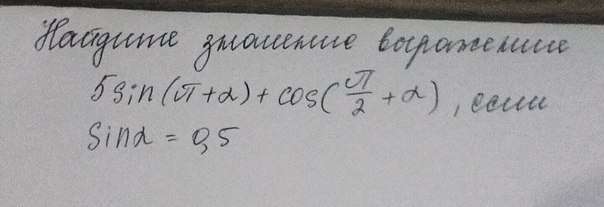 Найдите значение выражение
5sin(π+α)+cos(π/2+α), если
sinα = 0,5